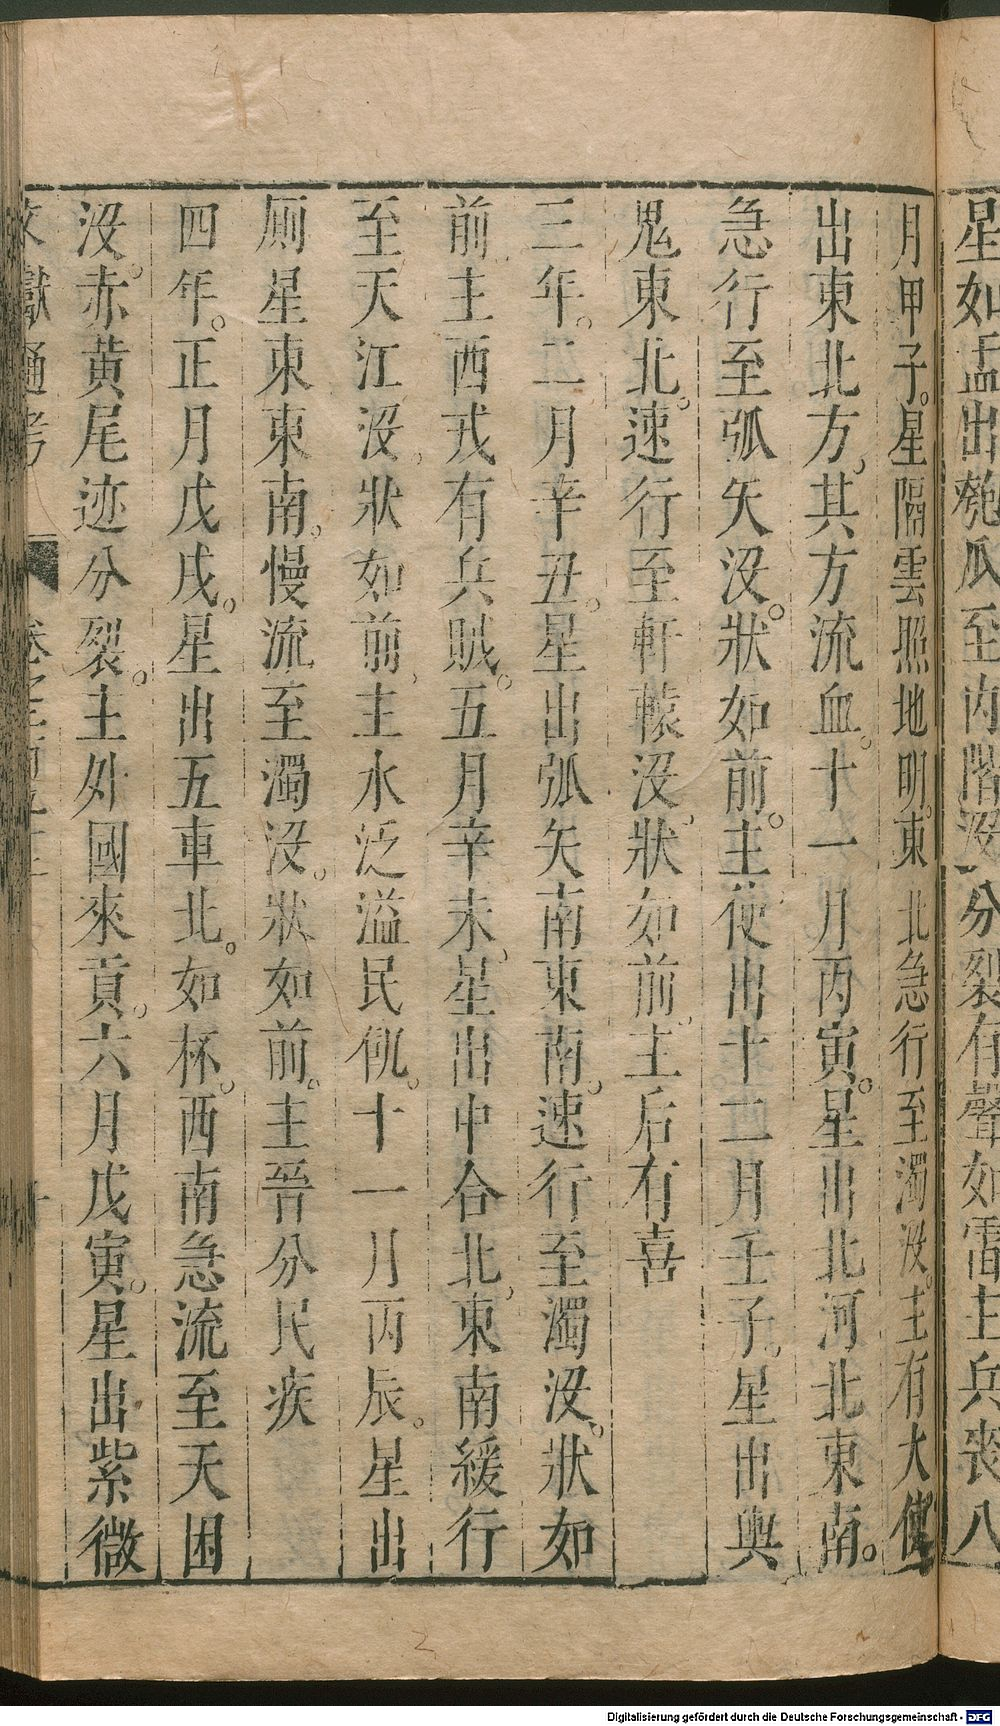 星如盂出匏瓜至內階沒分裂有聲如雷主兵喪八
月甲子星隔雲照地明東北急行至濁沒主有大使
出東北方其方流血十一月丙寅星出北河北東南
急行至弧矢沒狀如前主使出十二月壬子星出輿
鬼東北速行至軒轅沒狀如前主后有喜
三年二月辛丑星出弧矢南東南速行至濁沒狀如
前主西戎有兵賊五月辛未星出中台北東南緩行
至天江沒狀如前主水泛溢民飢十一月丙辰星出
厠星東東南慢流至濁沒狀如前主晉分民疾
四年正月戊戌星出五車北如杯西南急流至天囷
沒赤黃尾迹分裂主外國來貢六月戊寅星出紫微
文獻通考
Digitalisierung gefördert durch die Deutsche Forschungsgemeinschaft - DFG